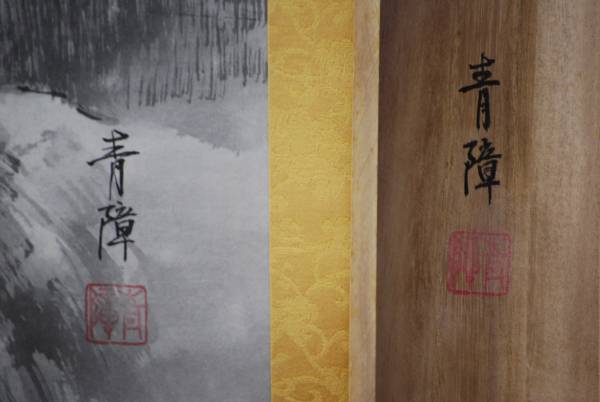 青障
青障